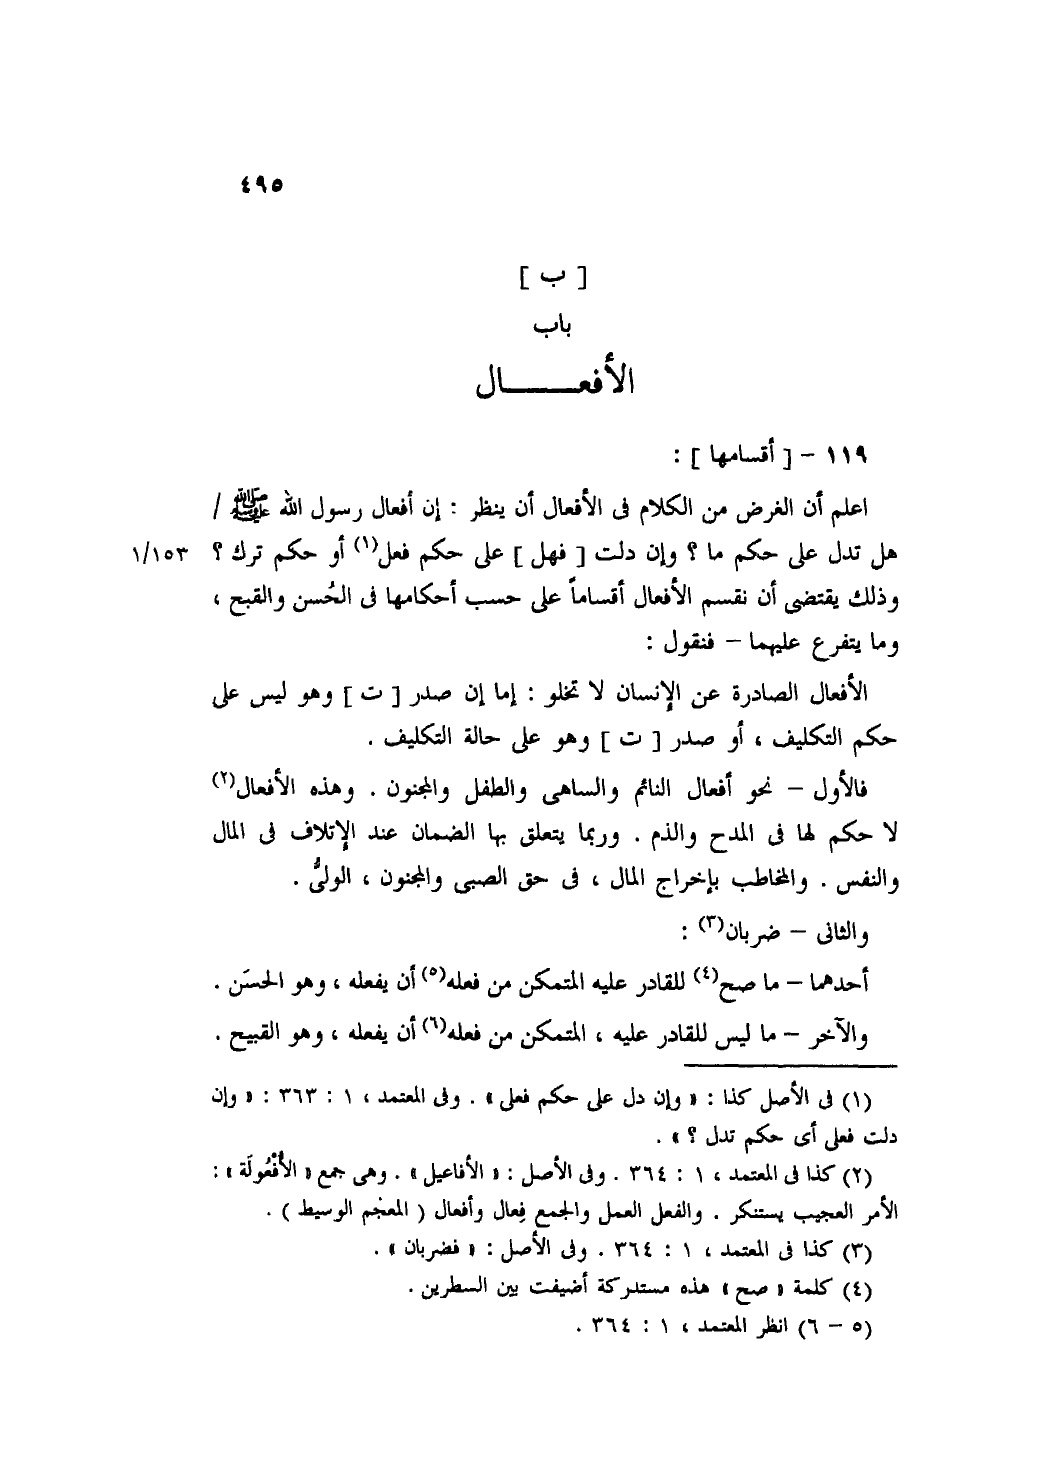 ٤٩٥
[ ب ]
باب
الأفعـــــال
١١٩ – [ أقسامها ] :
اعلم أن الغرض من الكلام فى الأفعال أن ينظر : إن أفعال رسول الله ﷺ /
هل تدل على حكم ما ؟ وإن دلت [ فهل ] على حكم فعل(١) أو حكم ترك ؟ ١/١٥٣
وذلك يقتضى أن نقسم الأفعال أقساماً على حسب أحكامها فى الحُسن والقبح ،
وما يتفرع عليهما – فنقول :
الأفعال الصادرة عن الإنسان لا تخلو : إما إن صدر [ ت ] وهو ليس على
حكم التكليف ، أو صدر [ ت ] وهو على حالة التكليف .
فالأول – نحو أفعال النائم والساهى والطفل والمجنون . وهذه الأفعال(٢)
لا حكم لها فى المدح والذم . وربما يتعلق بها الضمان عند الإتلاف فى المال
والنفس . والمخاطب بإخراج المال ، فى حق الصبى والمجنون ، الولىُّ .
والثانى – ضربان(٣) :
أحدهما – ما صح(٤) للقادر عليه المتمكن من فعله(٥) أن يفعله ، وهو الحسَن .
والآخر – ما ليس للقادر عليه ، المتمكن من فعله(٦) أن يفعله ، وهو القبيح .
(١) فى الأصل كذا : « وإن دل على حكم فعلى » . وفى المعتمد ، ١ : ٣٦٣ : « وإن
دلت فعلى أى حكم تدل ؟ » .
(٢) كذا فى المعتمد ، ١ : ٣٦٤ . وفى الأصل : « الأفاعيل » . وهى جمع « الأُفْعُولَة » :
الأمر العجيب يستنكر . والفعل العمل والجمع فِعال وأفعال ( المعجم الوسيط ) .
(٣) كذا فى المعتمد ، ١ : ٣٦٤ . وفى الأصل : « فضربان » .
(٤) كلمة « صح » هذه مستدركة أضيفت بين السطرين .
(٥ – ٦) انظر المعتمد ، ١ : ٣٦٤ .